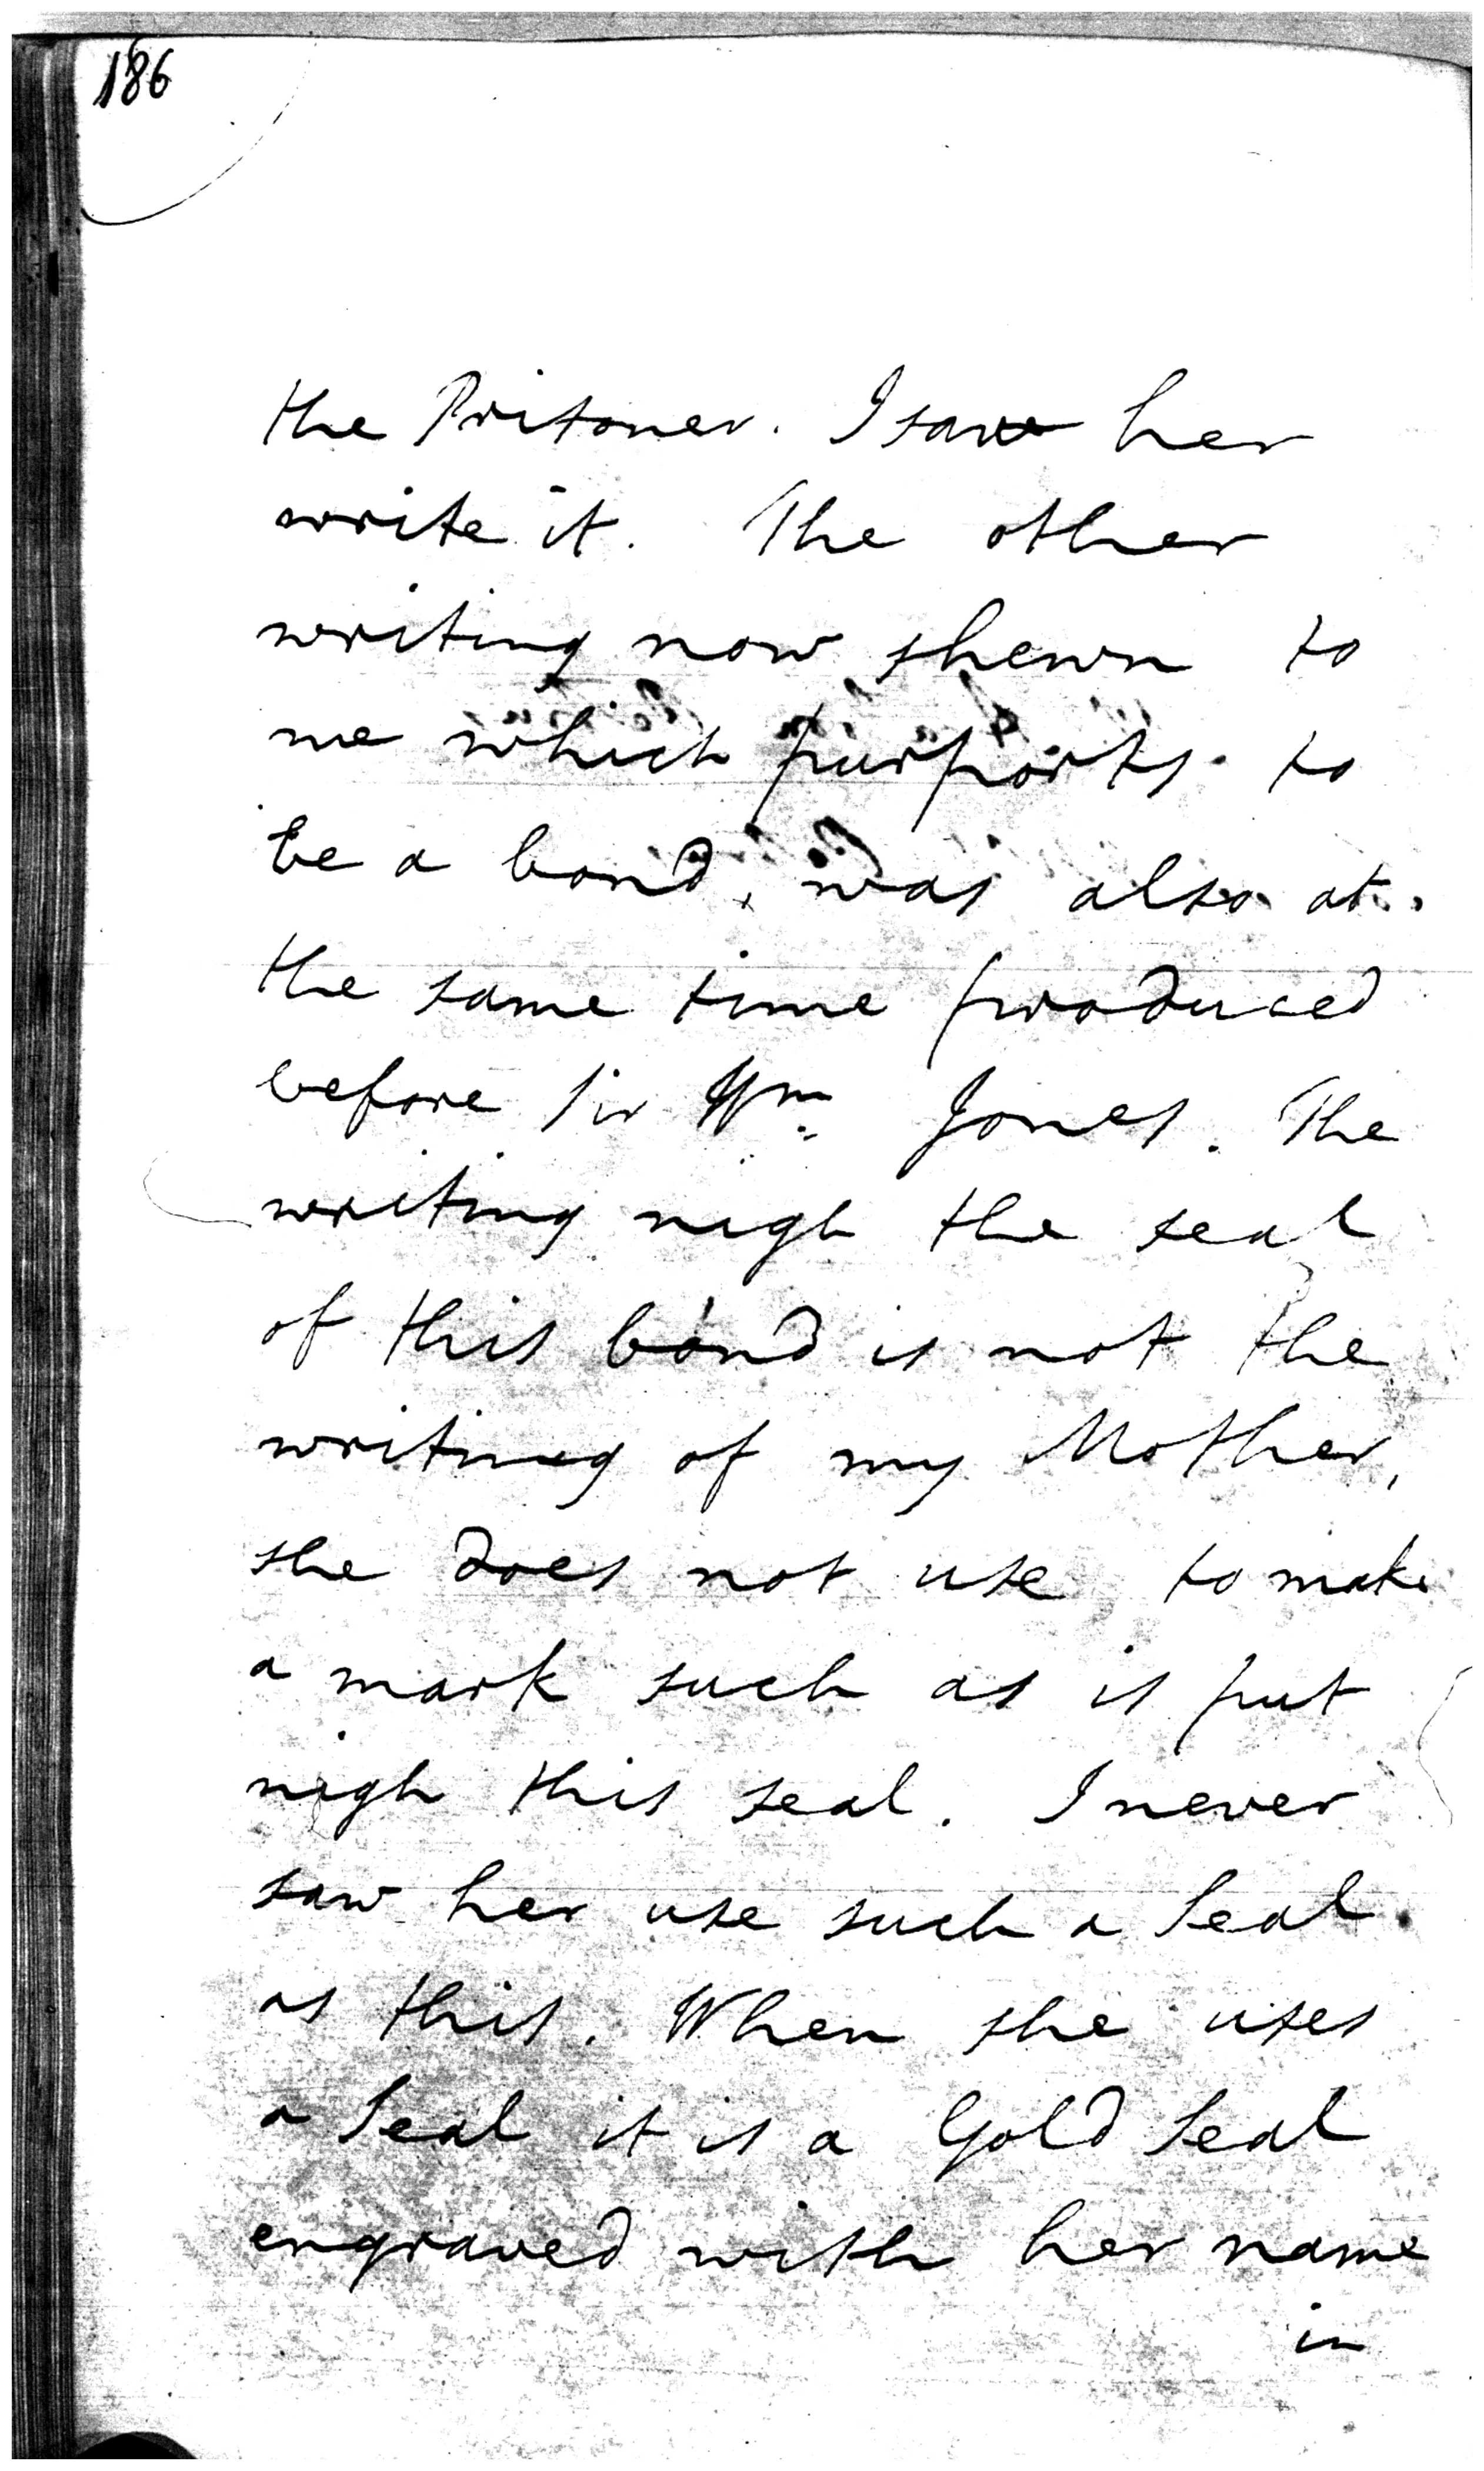 186
the Prisoner. I saw her
write it. The other
writing now shewn to
me which purports to
be a bond, was also at
the same time produced
before Sir Wm. Jones. The
writing nigh the seal
of this bond is not the
writing of my Mother,
she does not use to make
a mark such as is put
nigh this seal. I never
saw her use such a Seal
as this. When she uses
a Seal it is a Gold Seal
engraved with her name
in